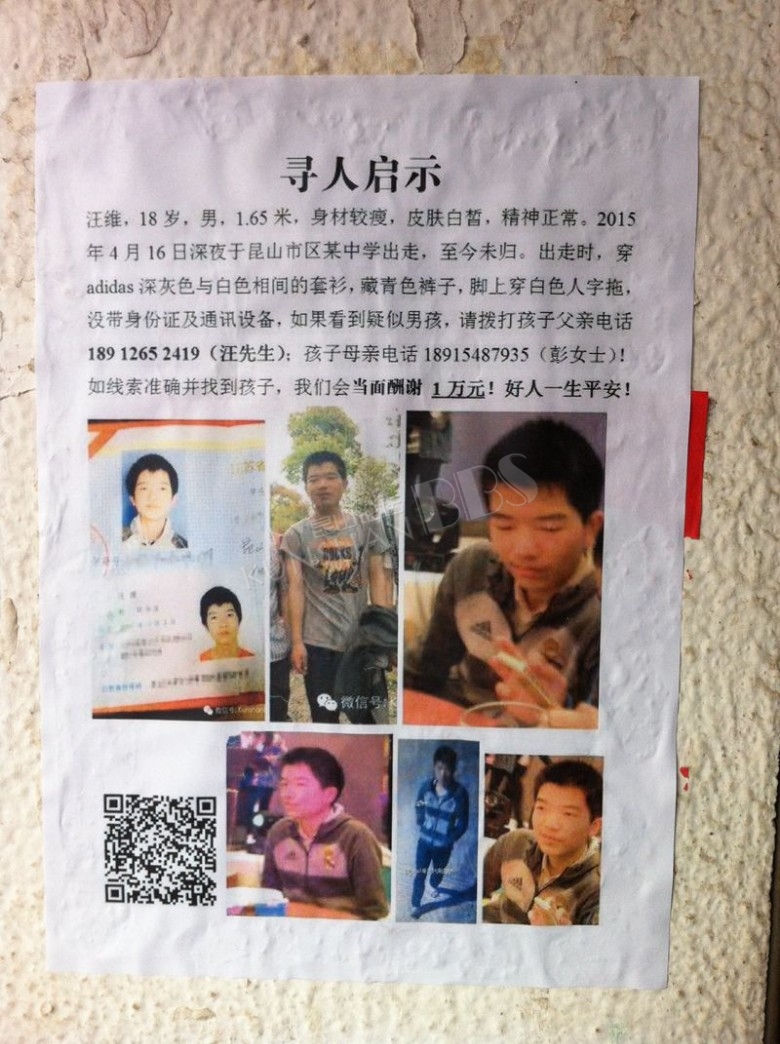 寻人启示
汪维，18岁，男，1.65米，身材较瘦，皮肤白皙，精神正常。2015
年4月16日深夜于昆山市区某中学出走，至今未归。出走时，穿
adidas深灰色与白色相间的套衫，藏青色裤子，脚上穿白色人字拖，
没带身份证及通讯设备，如果看到疑似男孩，请拨打孩子父亲电话
189 1265 2419（汪先生）；孩子母亲电话18915487935（彭女士）！
如线索准确并找到孩子，我们会当面酬谢 1万元！好人一生平安！
BBS
微信号: